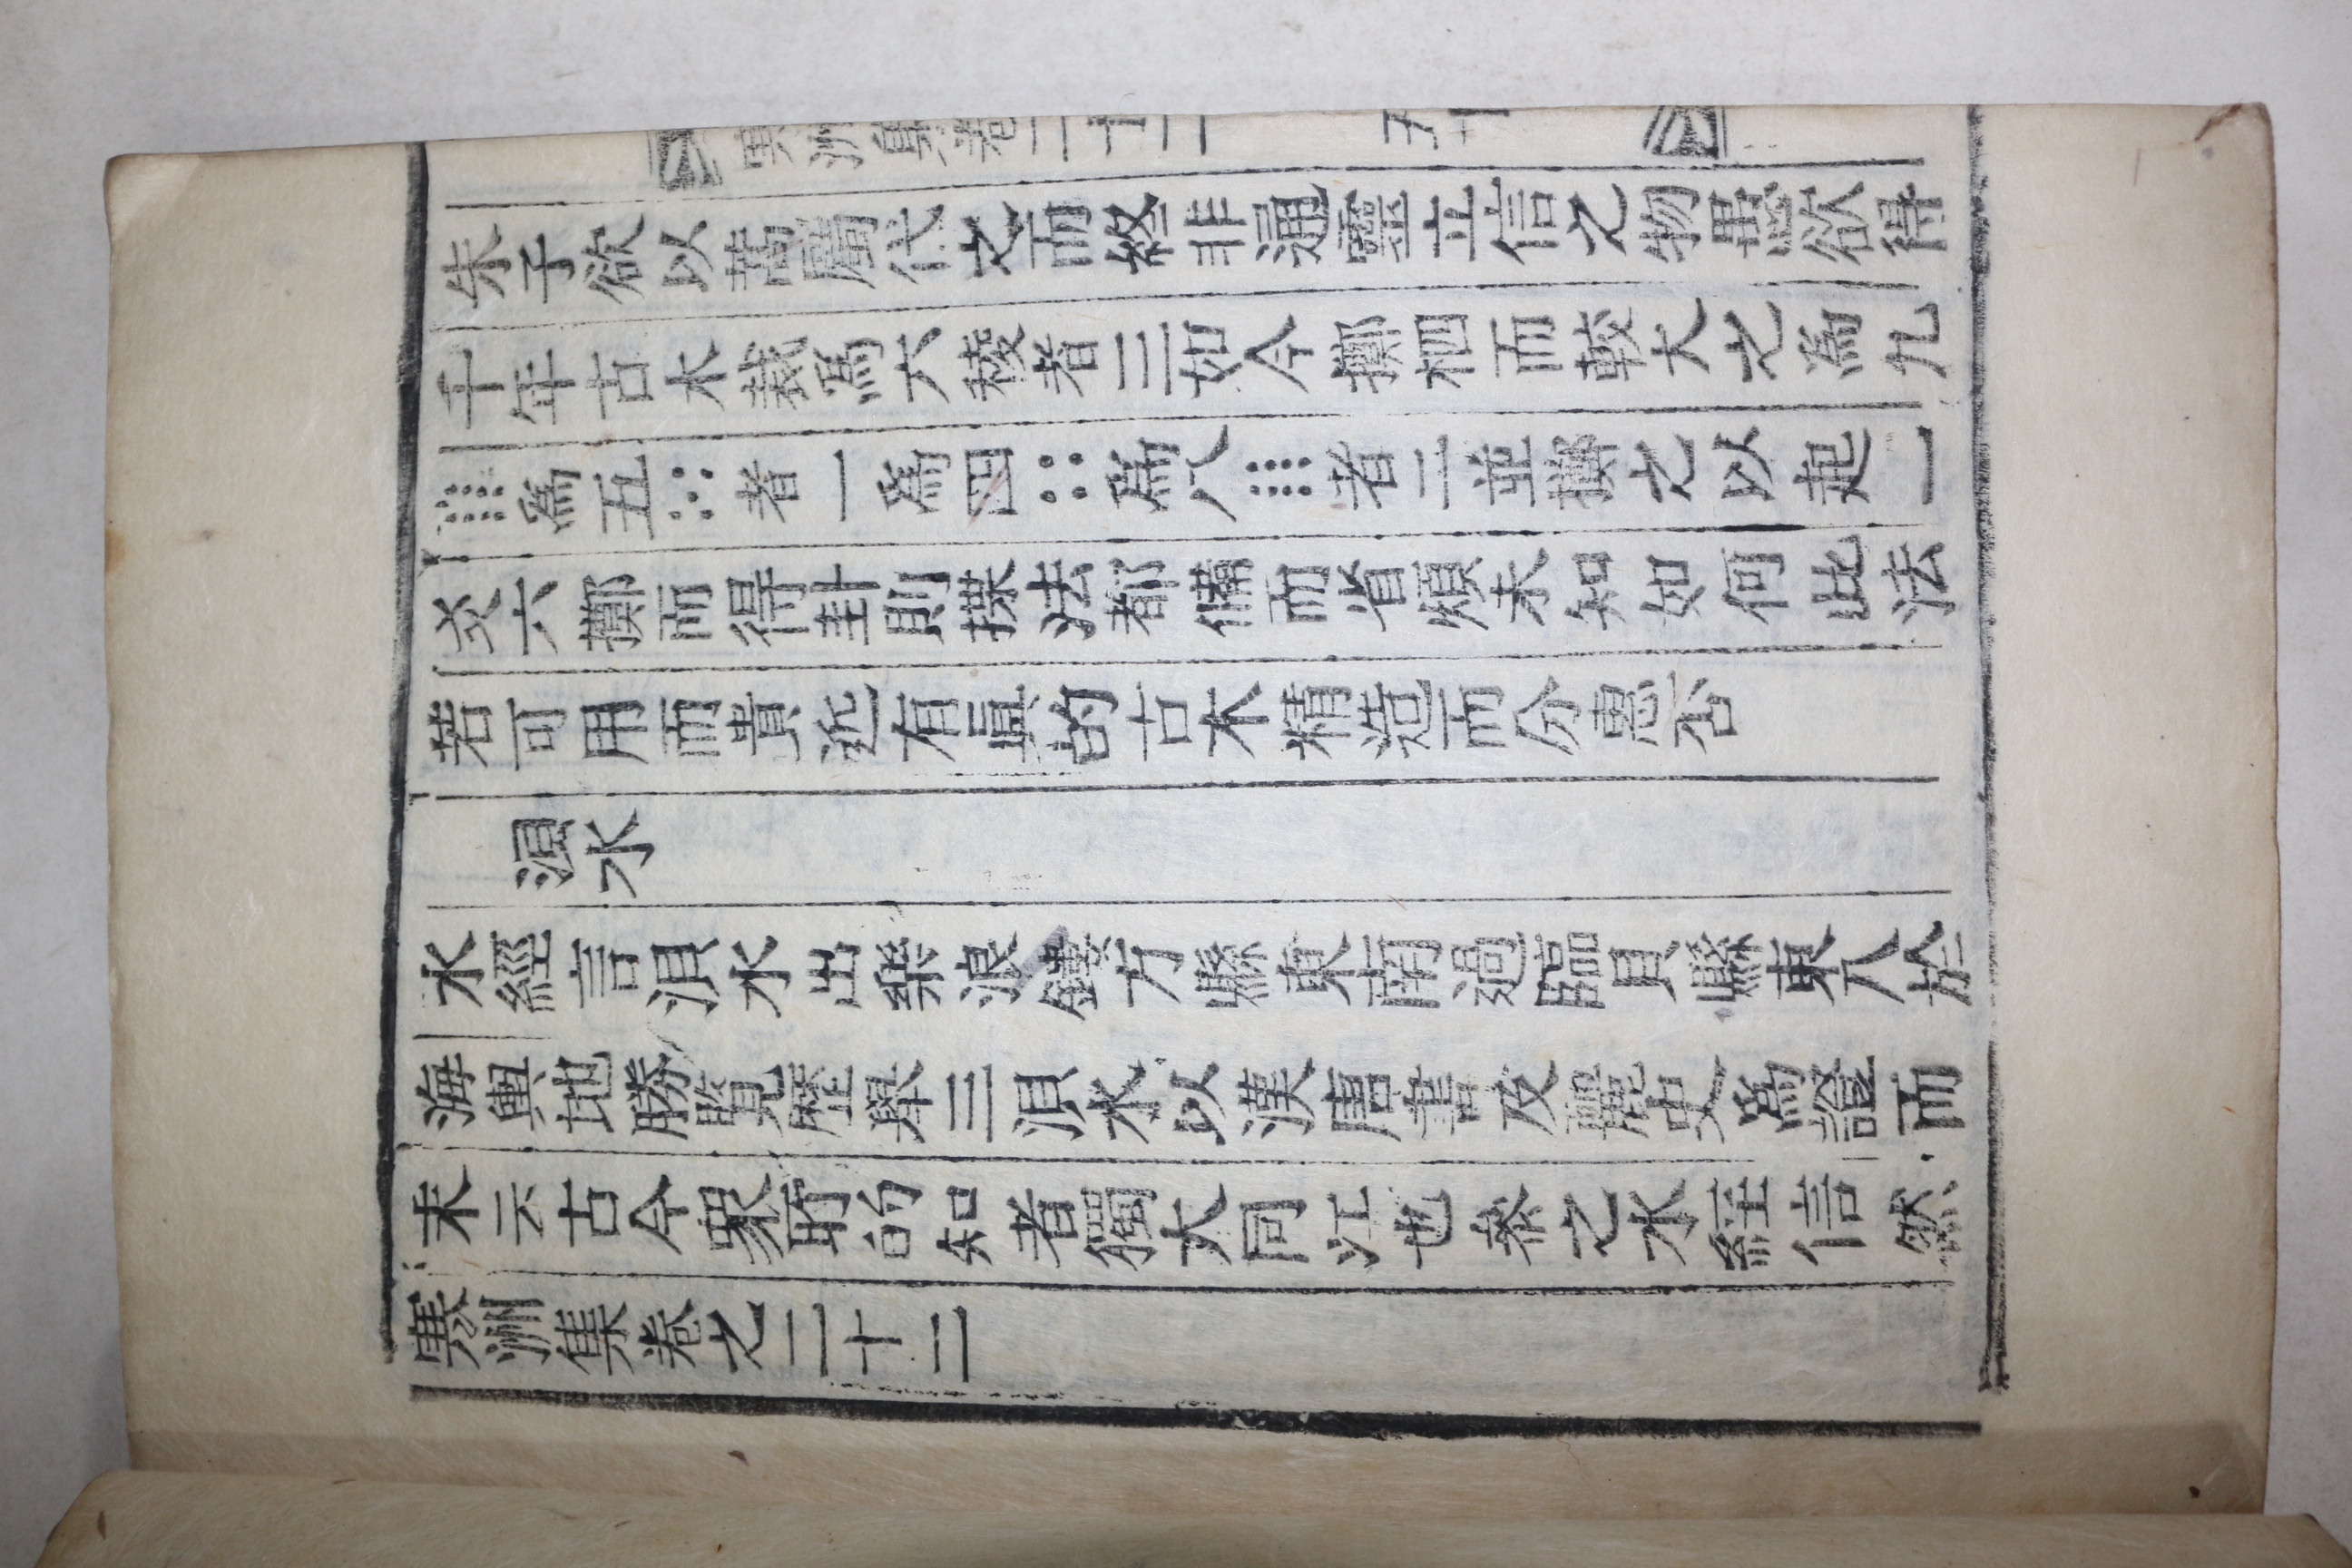 寒洲集卷二十二 五十
朱子欲以代之而終非通靈立信之物思欲得
千年古木裁爲六稜者三如今擲柶而較大之爲九
爲五⁙者一爲四∷爲八者二並擲之以起一
爻六擲而得卦則揲法都備而省煩未知如何此法
若可用而貴近有眞的古木精造而分惠否
浿水
水經言浿水出樂浪鏤方縣東南過臨貝縣東入於
海輿地勝覽歷擧三浿水以漢唐書及麗史爲證而
末云古今衆所的知者獨大同江也參之水經信然
寒洲集卷之二十二